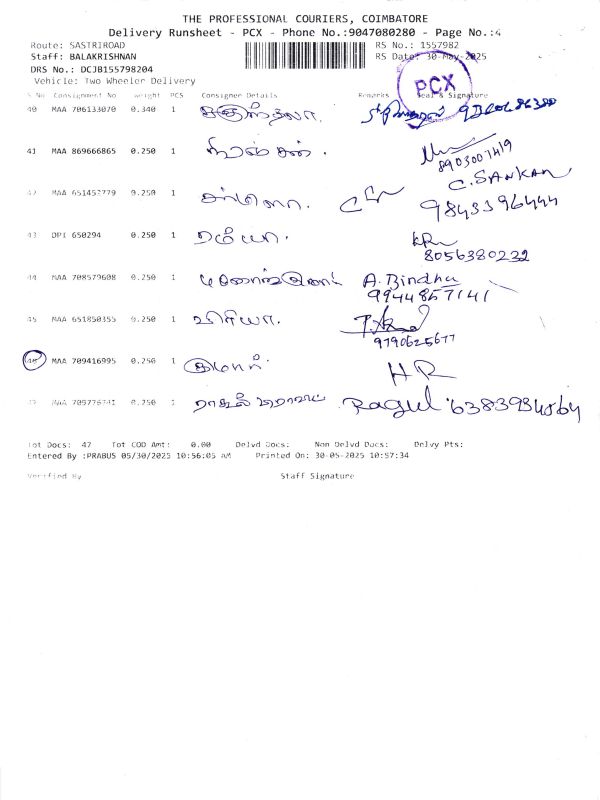 THE PROFESSIONAL COURIERS, COIMBATORE
Delivery Runsheet - PCX - Phone No.:9047080280 - Page No.:4
Route: SASTRIROAD
RS No.: 1557982
Staff: BALAKRISHNAN
RS Date: 30-May-2025
DRS No.: DCJB155798204
PCX
Vehicle: Two Wheeler Delivery
S No Consignment No Weight PCS Consignee Details Remarks Seal & Signature
40 MAA 706133070 0.340 1
41 MAA 869666865 0.250 1 8903007419
42 MAA 651453779 0.250 1 C. SANKAR 9843396444
43 DPI 650294 0.250 1 ரம்யா. 8056380232
44 MAA 708579608 0.250 1 A. Bindhu 9944857141
45 MAA 651850355 0.250 1 பிரியா. 9790625677
46 MAA 709416995 0.250 1 குமார் HR
47 MAA 709776741 0.250 1 Ragul
Tot Docs: 47 Tot COD Amt: 0.00 Delvd Docs: Non Delvd Docs: Delvy Pts:
Entered By :PRABUS 05/30/2025 10:56:05 AM Printed On: 30-05-2025 10:57:34
Verified By Staff Signature